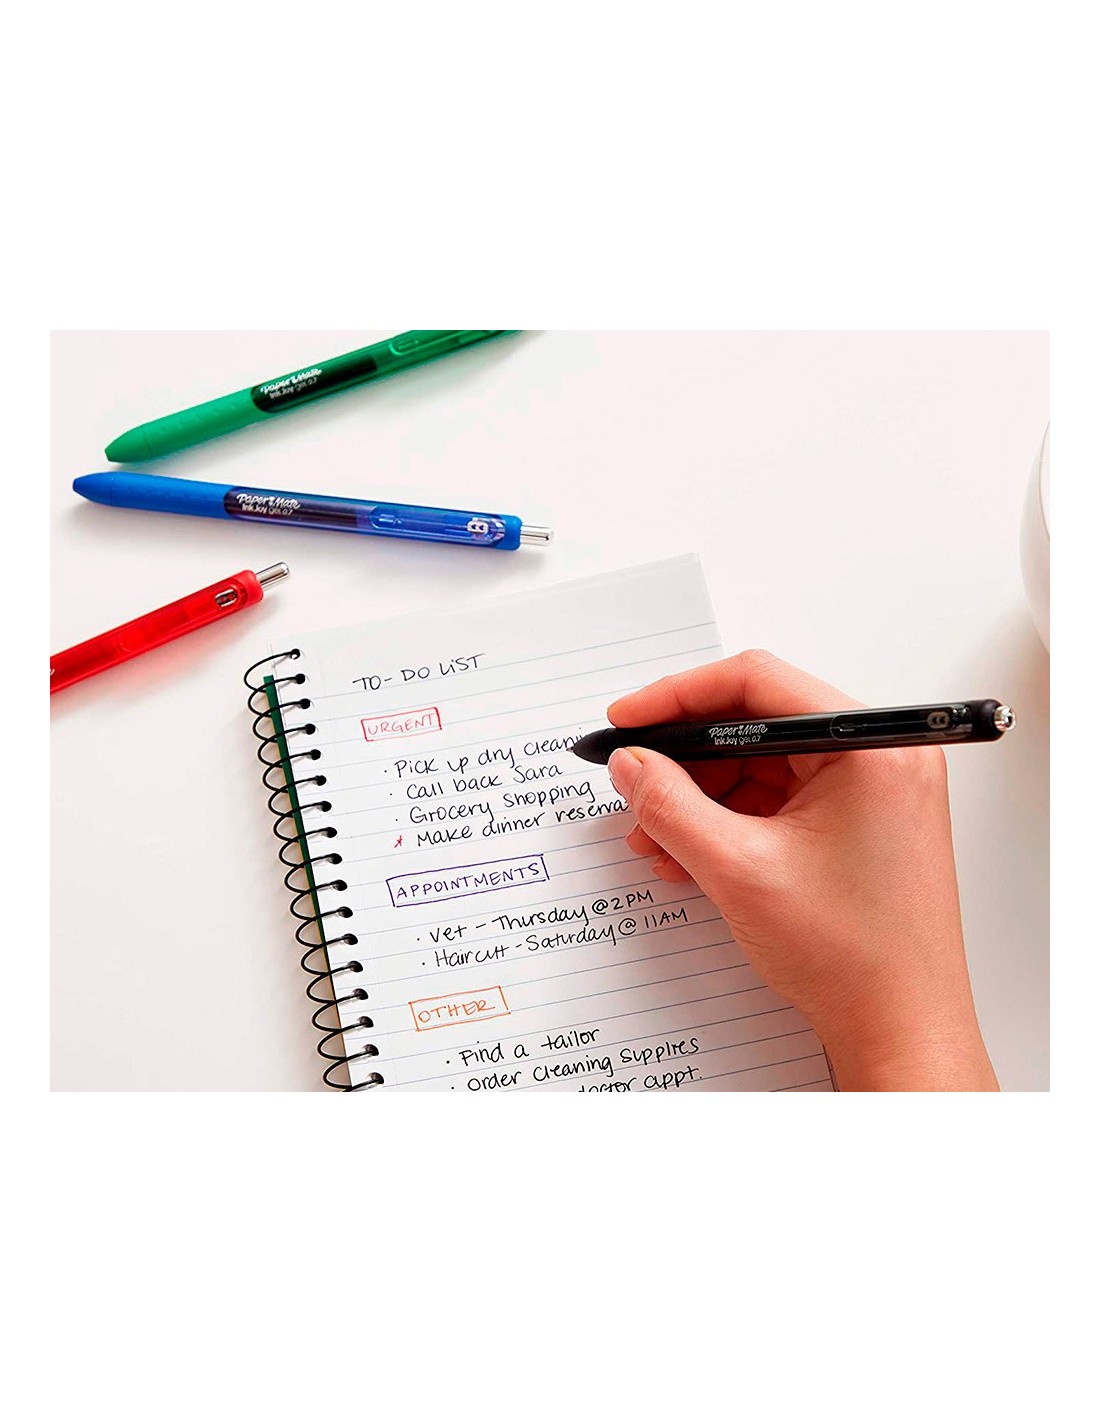 Paper Mate
InkJoy gel 0.7
Paper Mate
InkJoy gel 0.7
TO-DO LIST
URGENT
· Pick up dry cleani
· Call back Sara
· Grocery shopping
* Make dinner reserva
Paper Mate
InkJoy gel 0.7
APPOINTMENTS
· Vet - Thursday @ 2 PM
· Haircut - Saturday @ 11 AM
OTHER
· Find a tailor
· Order cleaning supplies
doctor appt.